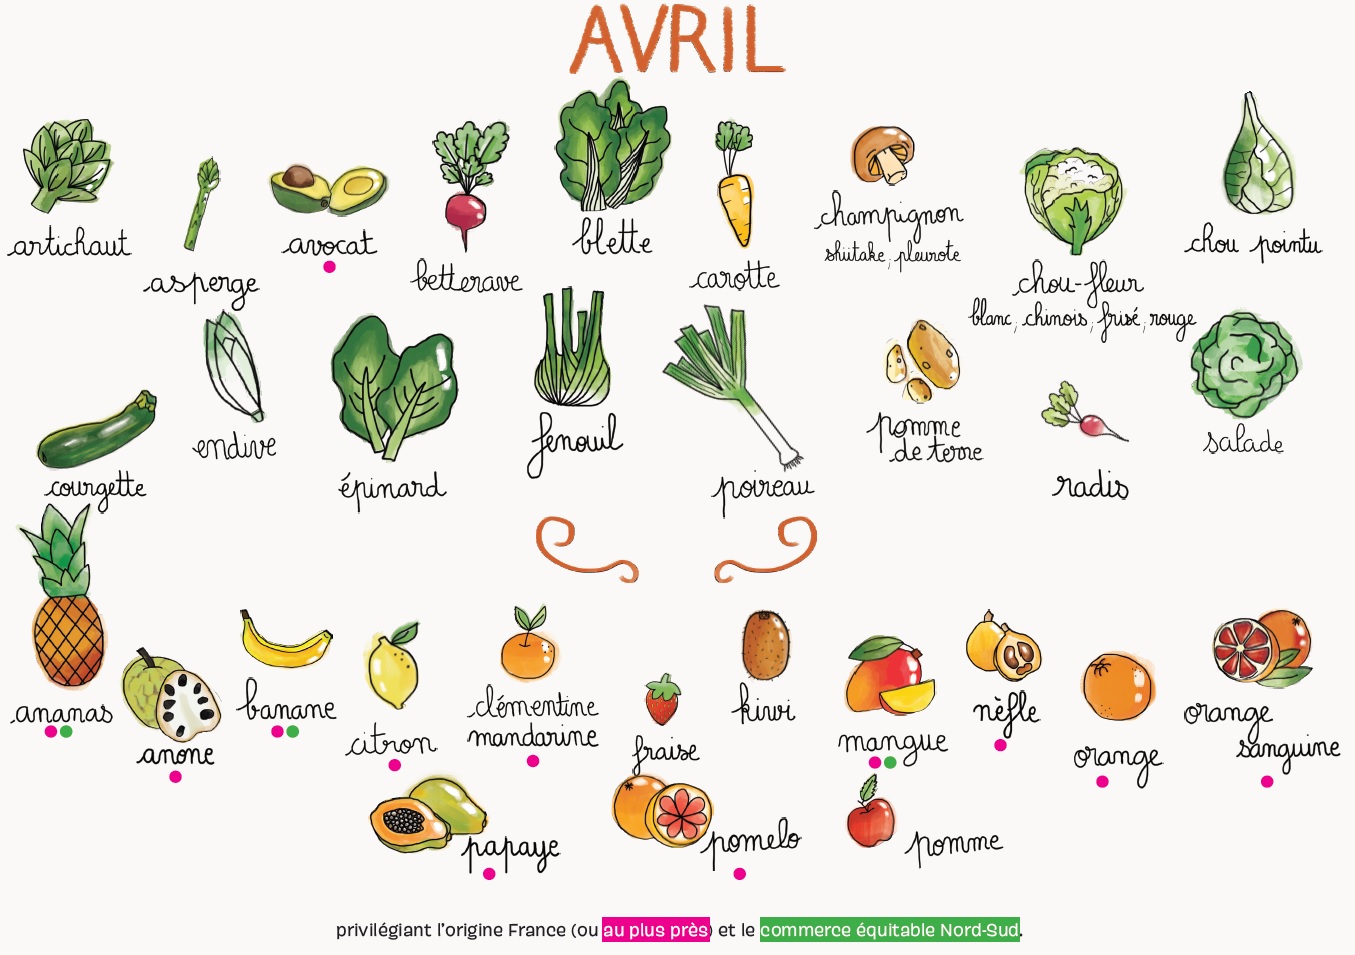 AVRIL
artichaut
asperge
avocat
betterave
blette
carotte
champignon
shiitake, pleurote
chou-fleur
blanc, chinois, frisé, rouge
chou pointu
courgette
endive
épinard
fenouil
poireau
pomme
de terre
radis
salade
ananas
anone
banane
citron
clémentine
mandarine
fraise
kiwi
mangue
nèfle
orange
orange
sanguine
papaye
pomelo
pomme
privilégiant l'origine France (ou au plus près) et le commerce équitable Nord-Sud.